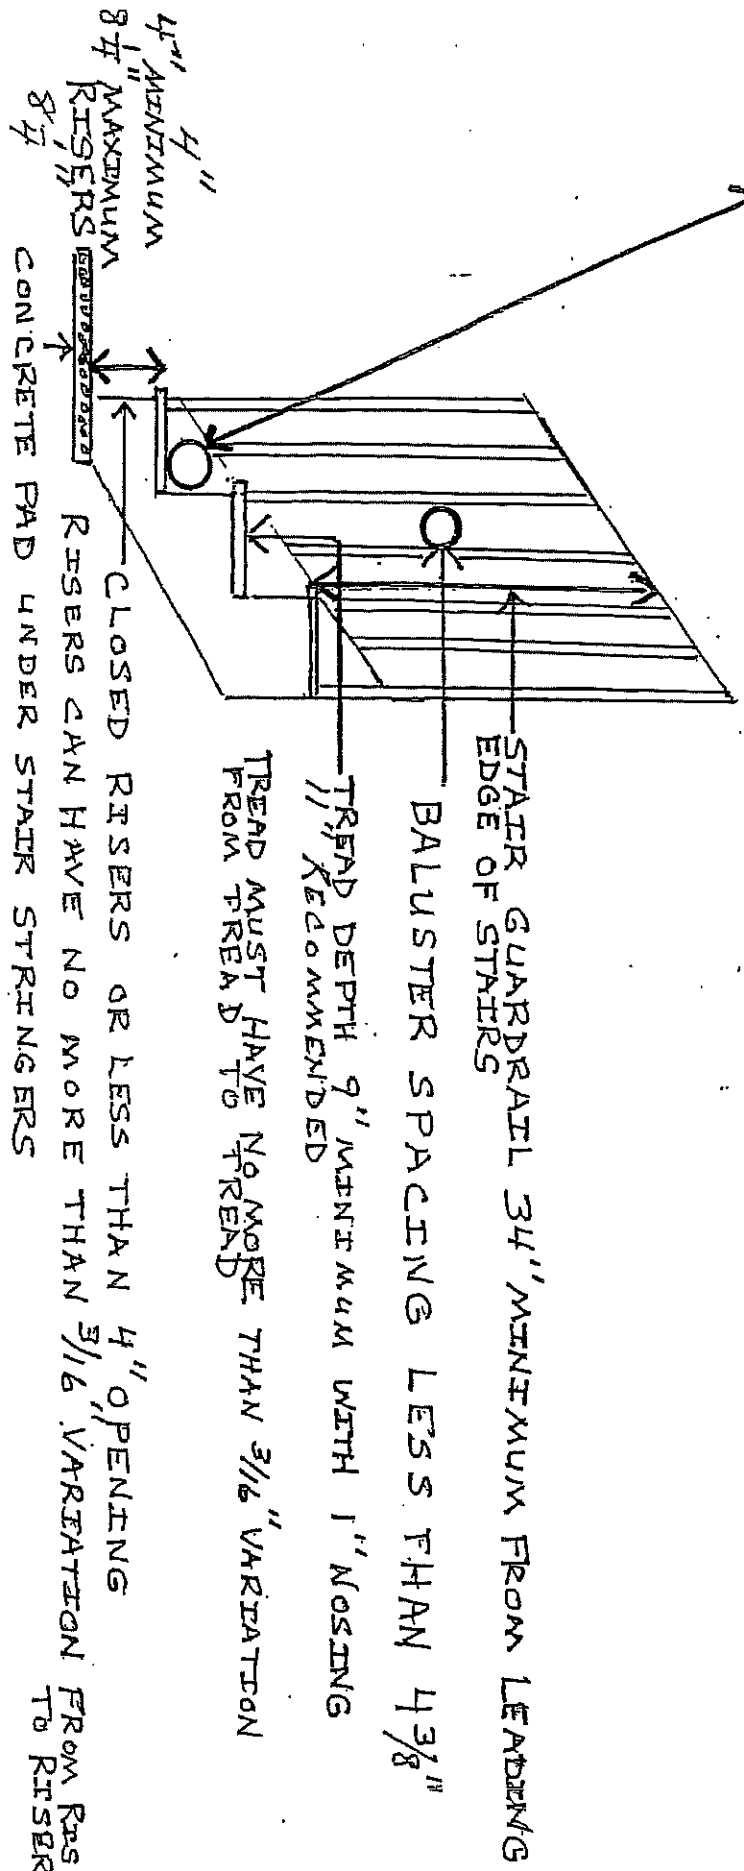 STAIR GUARDRAIL 34" MINIMUM FROM LEADING
EDGE OF STAIRS
BALUSTER SPACING LESS THAN 4 3/8"
TREAD DEPTH 9" MINIMUM WITH 1" NOSING
11" RECOMMENDED
TREAD MUST HAVE NO MORE THAN 3/16" VARIATION
FROM TREAD TO TREAD
4"
4" MINIMUM
8 1/4" MAXIMUM
RISERS
8 1/4"
CLOSED RISERS OR LESS THAN 4" OPENING
RISERS CAN HAVE NO MORE THAN 3/16" VARIATION FROM RIS
TO RISER
CONCRETE PAD UNDER STAIR STRINGERS